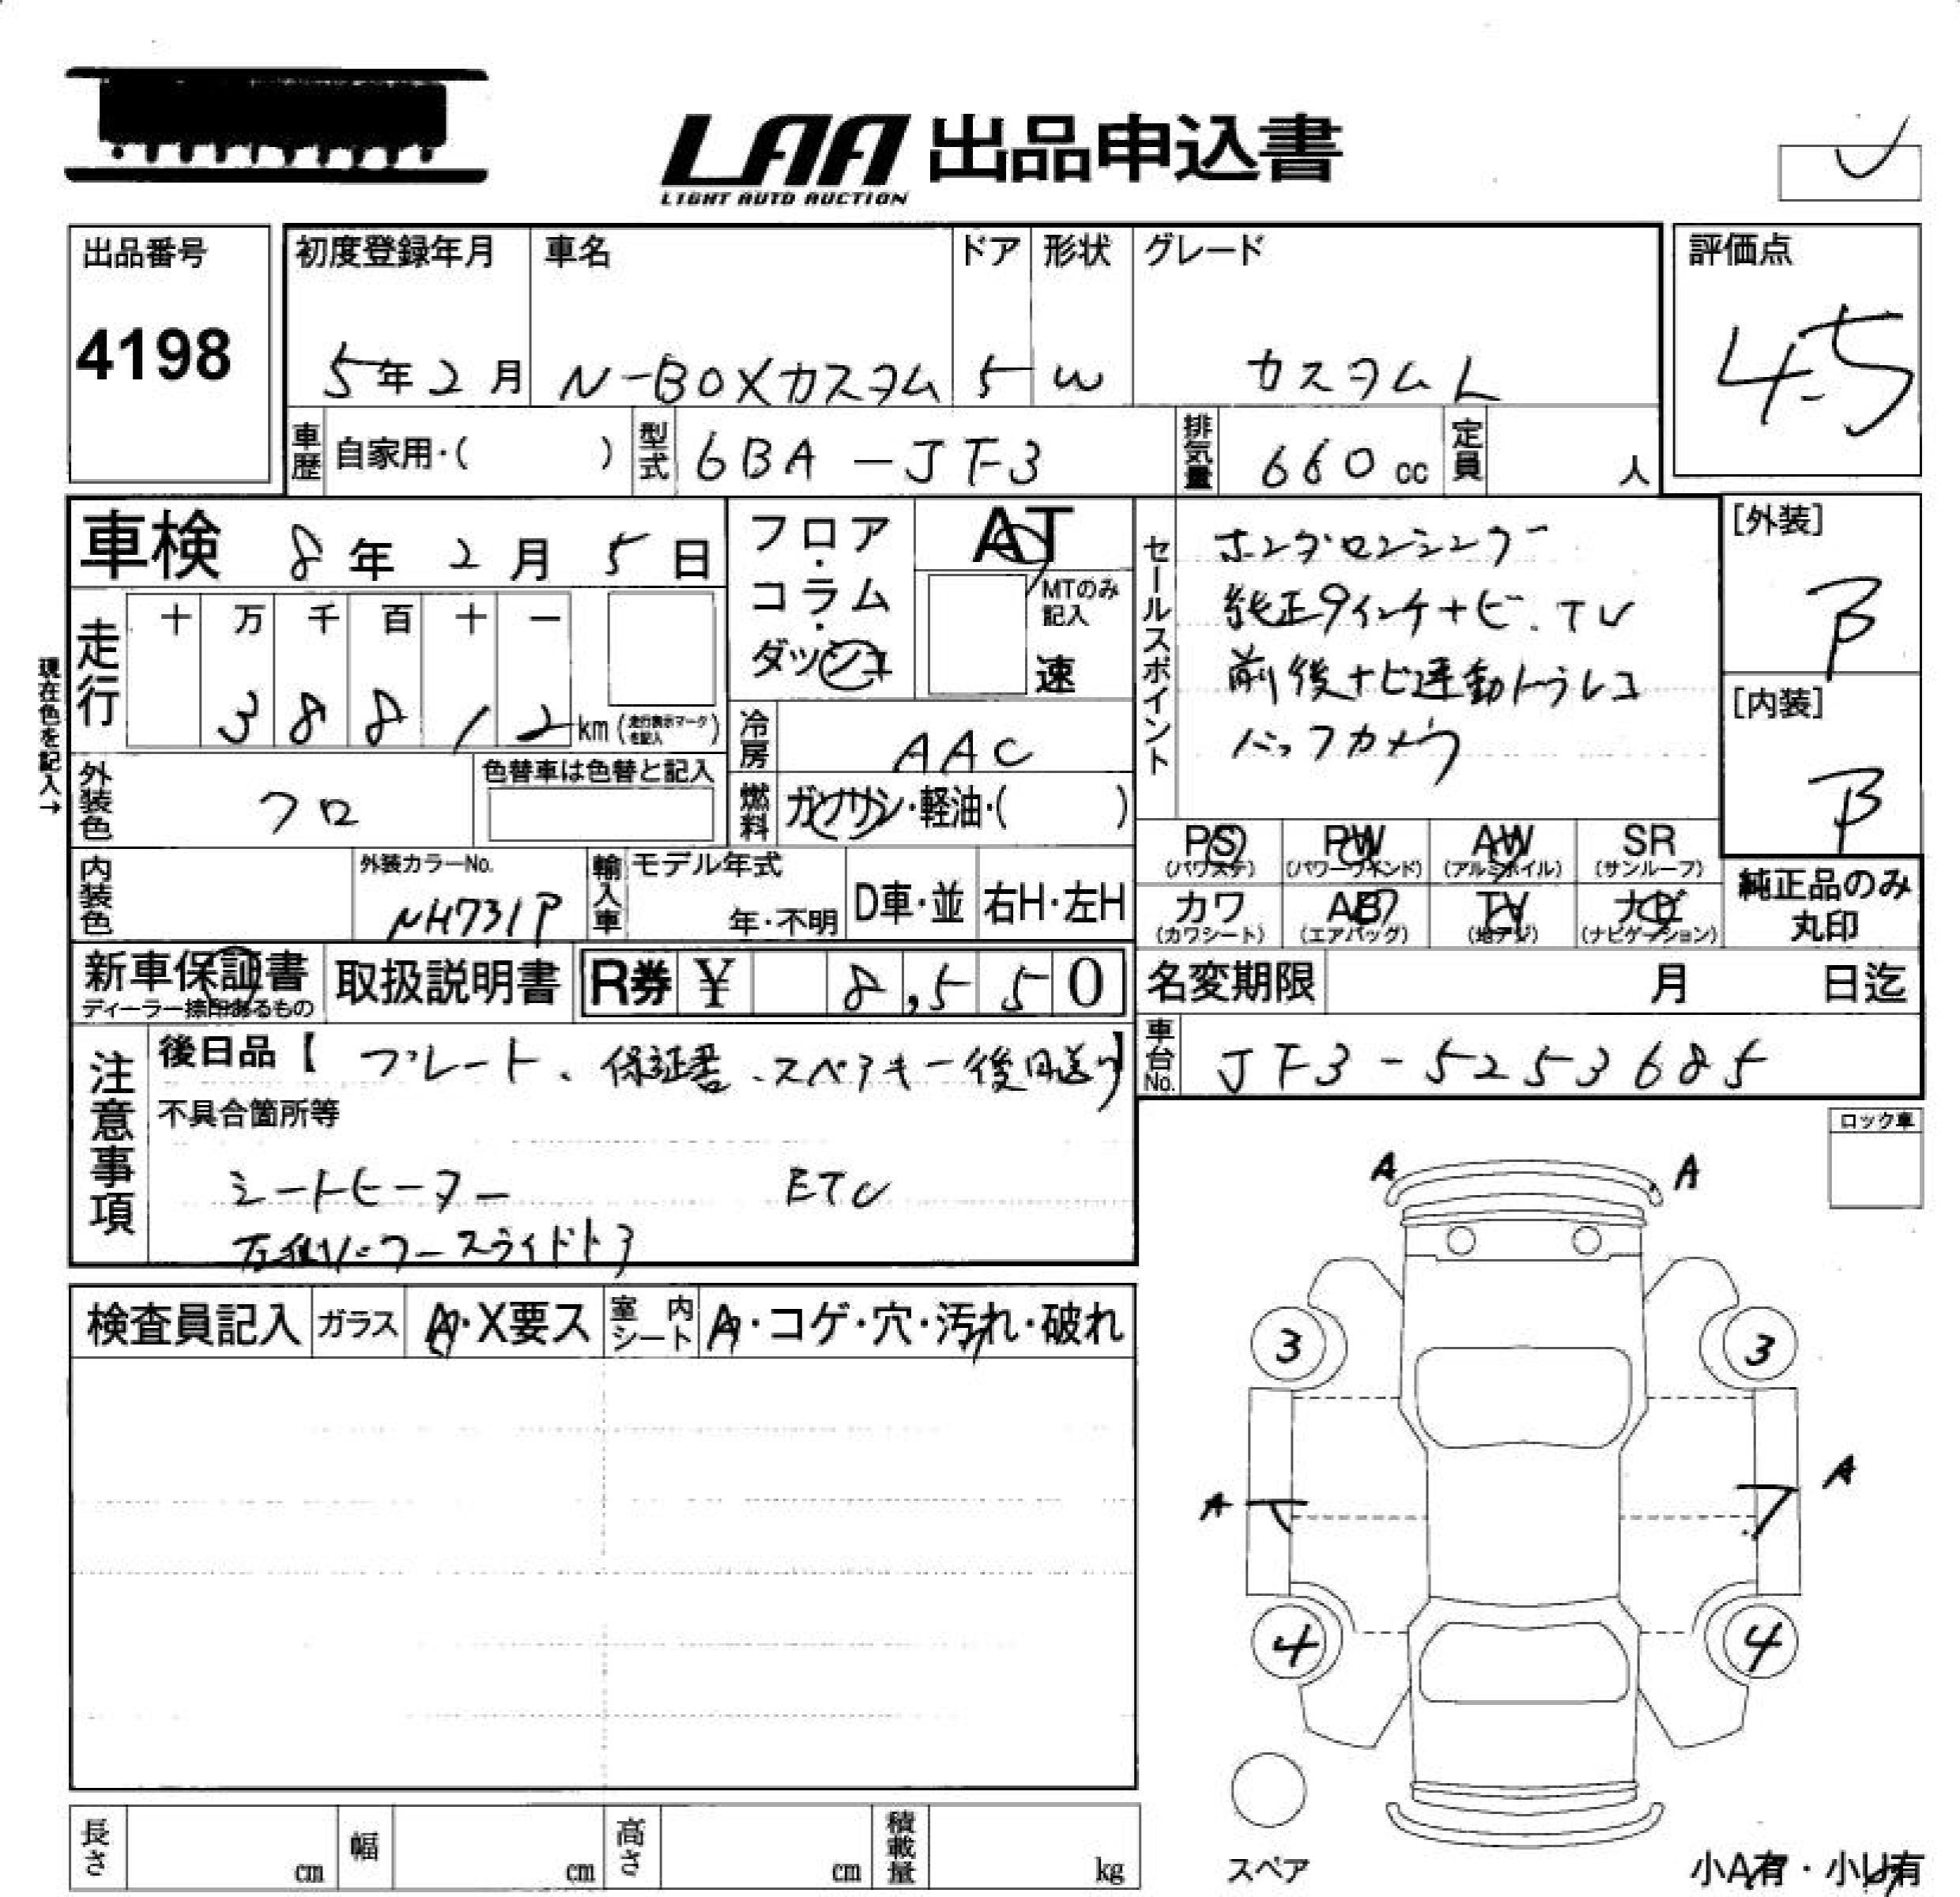 LAA 出品申込書
LIGHT AUTO AUCTION
出品番号
4198
初度登録年月
5年2月
車名
N-BOXカスタム
ドア
5
形状
W
グレード
カスタムL
評価点
4.5
車歴 自家用・( )
型式 6BA-JF3
排気量 660cc
定員 人
車検 8年2月5日
フロア・コラム・ダッシュ
AT
MTのみ記入
速
セールスポイント
ホンダセンシング
純正9インチナビ.TV
前後ナビ連動ドラレコ
バックカメラ
[外装]
B
[内装]
B
現在色を記入→
走行
十 万 千 百 十 一
3 8 8 1 2 km (走行表示マークを記入)
冷房 AAC
外装色 クロ
色替車は色替と記入
燃料 ガソリン・軽油・( )
PS (パワステ)
PW (パワーウインド)
AW (アルミホイル)
SR (サンルーフ)
カワ (カワシート)
AB (エアバッグ)
TV (地デジ)
ナビ (ナビゲーション)
純正品のみ丸印
内装色
外装カラーNo.
NH731P
輸入車
モデル年式
年・不明
D車・並
右H・左H
新車保証書
ディーラー捺印あるもの
取扱説明書
R券 ¥ 8,550
名変期限 月 日迄
車台No. JF3-5253685
注意事項
後日品【プレート、保証書、スペアキー後日送り】
不具合箇所等
シートヒーター ETC
左側パワースライドドア
ロック車
A A
3 3
A A
4 4
検査員記入
ガラス A・X要ス
室内シート A・コゲ・穴・汚れ・破れ
長さ cm
幅 cm
高さ cm
積載量 kg
スペア
小A有・小U有